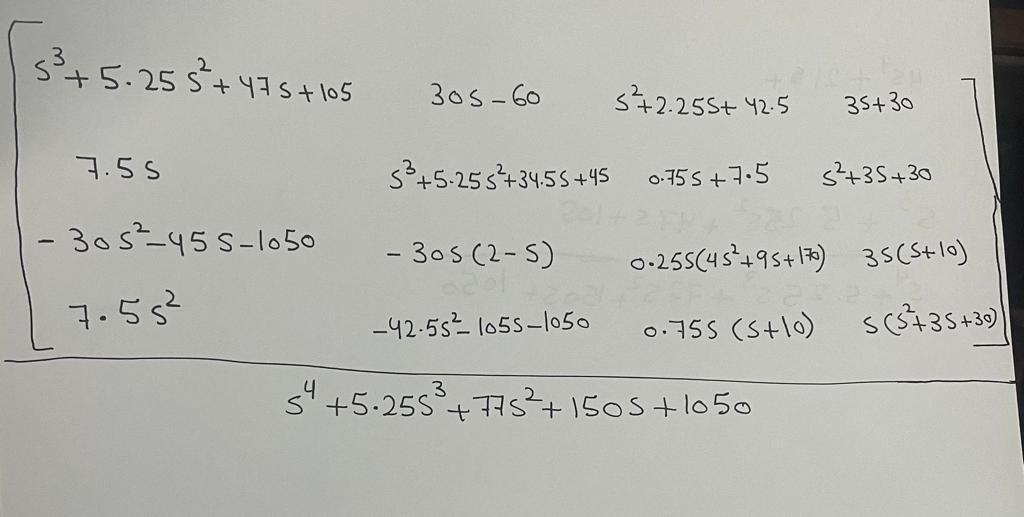 s³+5.25s²+47s+105 30s-60 s²+2.25s+42.5 3s+30
7.5s s³+5.25s²+34.5s+45 0.75s+7.5 s²+3s+30
-30s²-45s-1050 -30s(2-s) 0.25s(4s²+9s+170) 3s(s+10)
7.5s² -42.5s²-105s-1050 0.75s(s+10) s(s²+3s+30)
s⁴+5.25s³+77s²+150s+1050